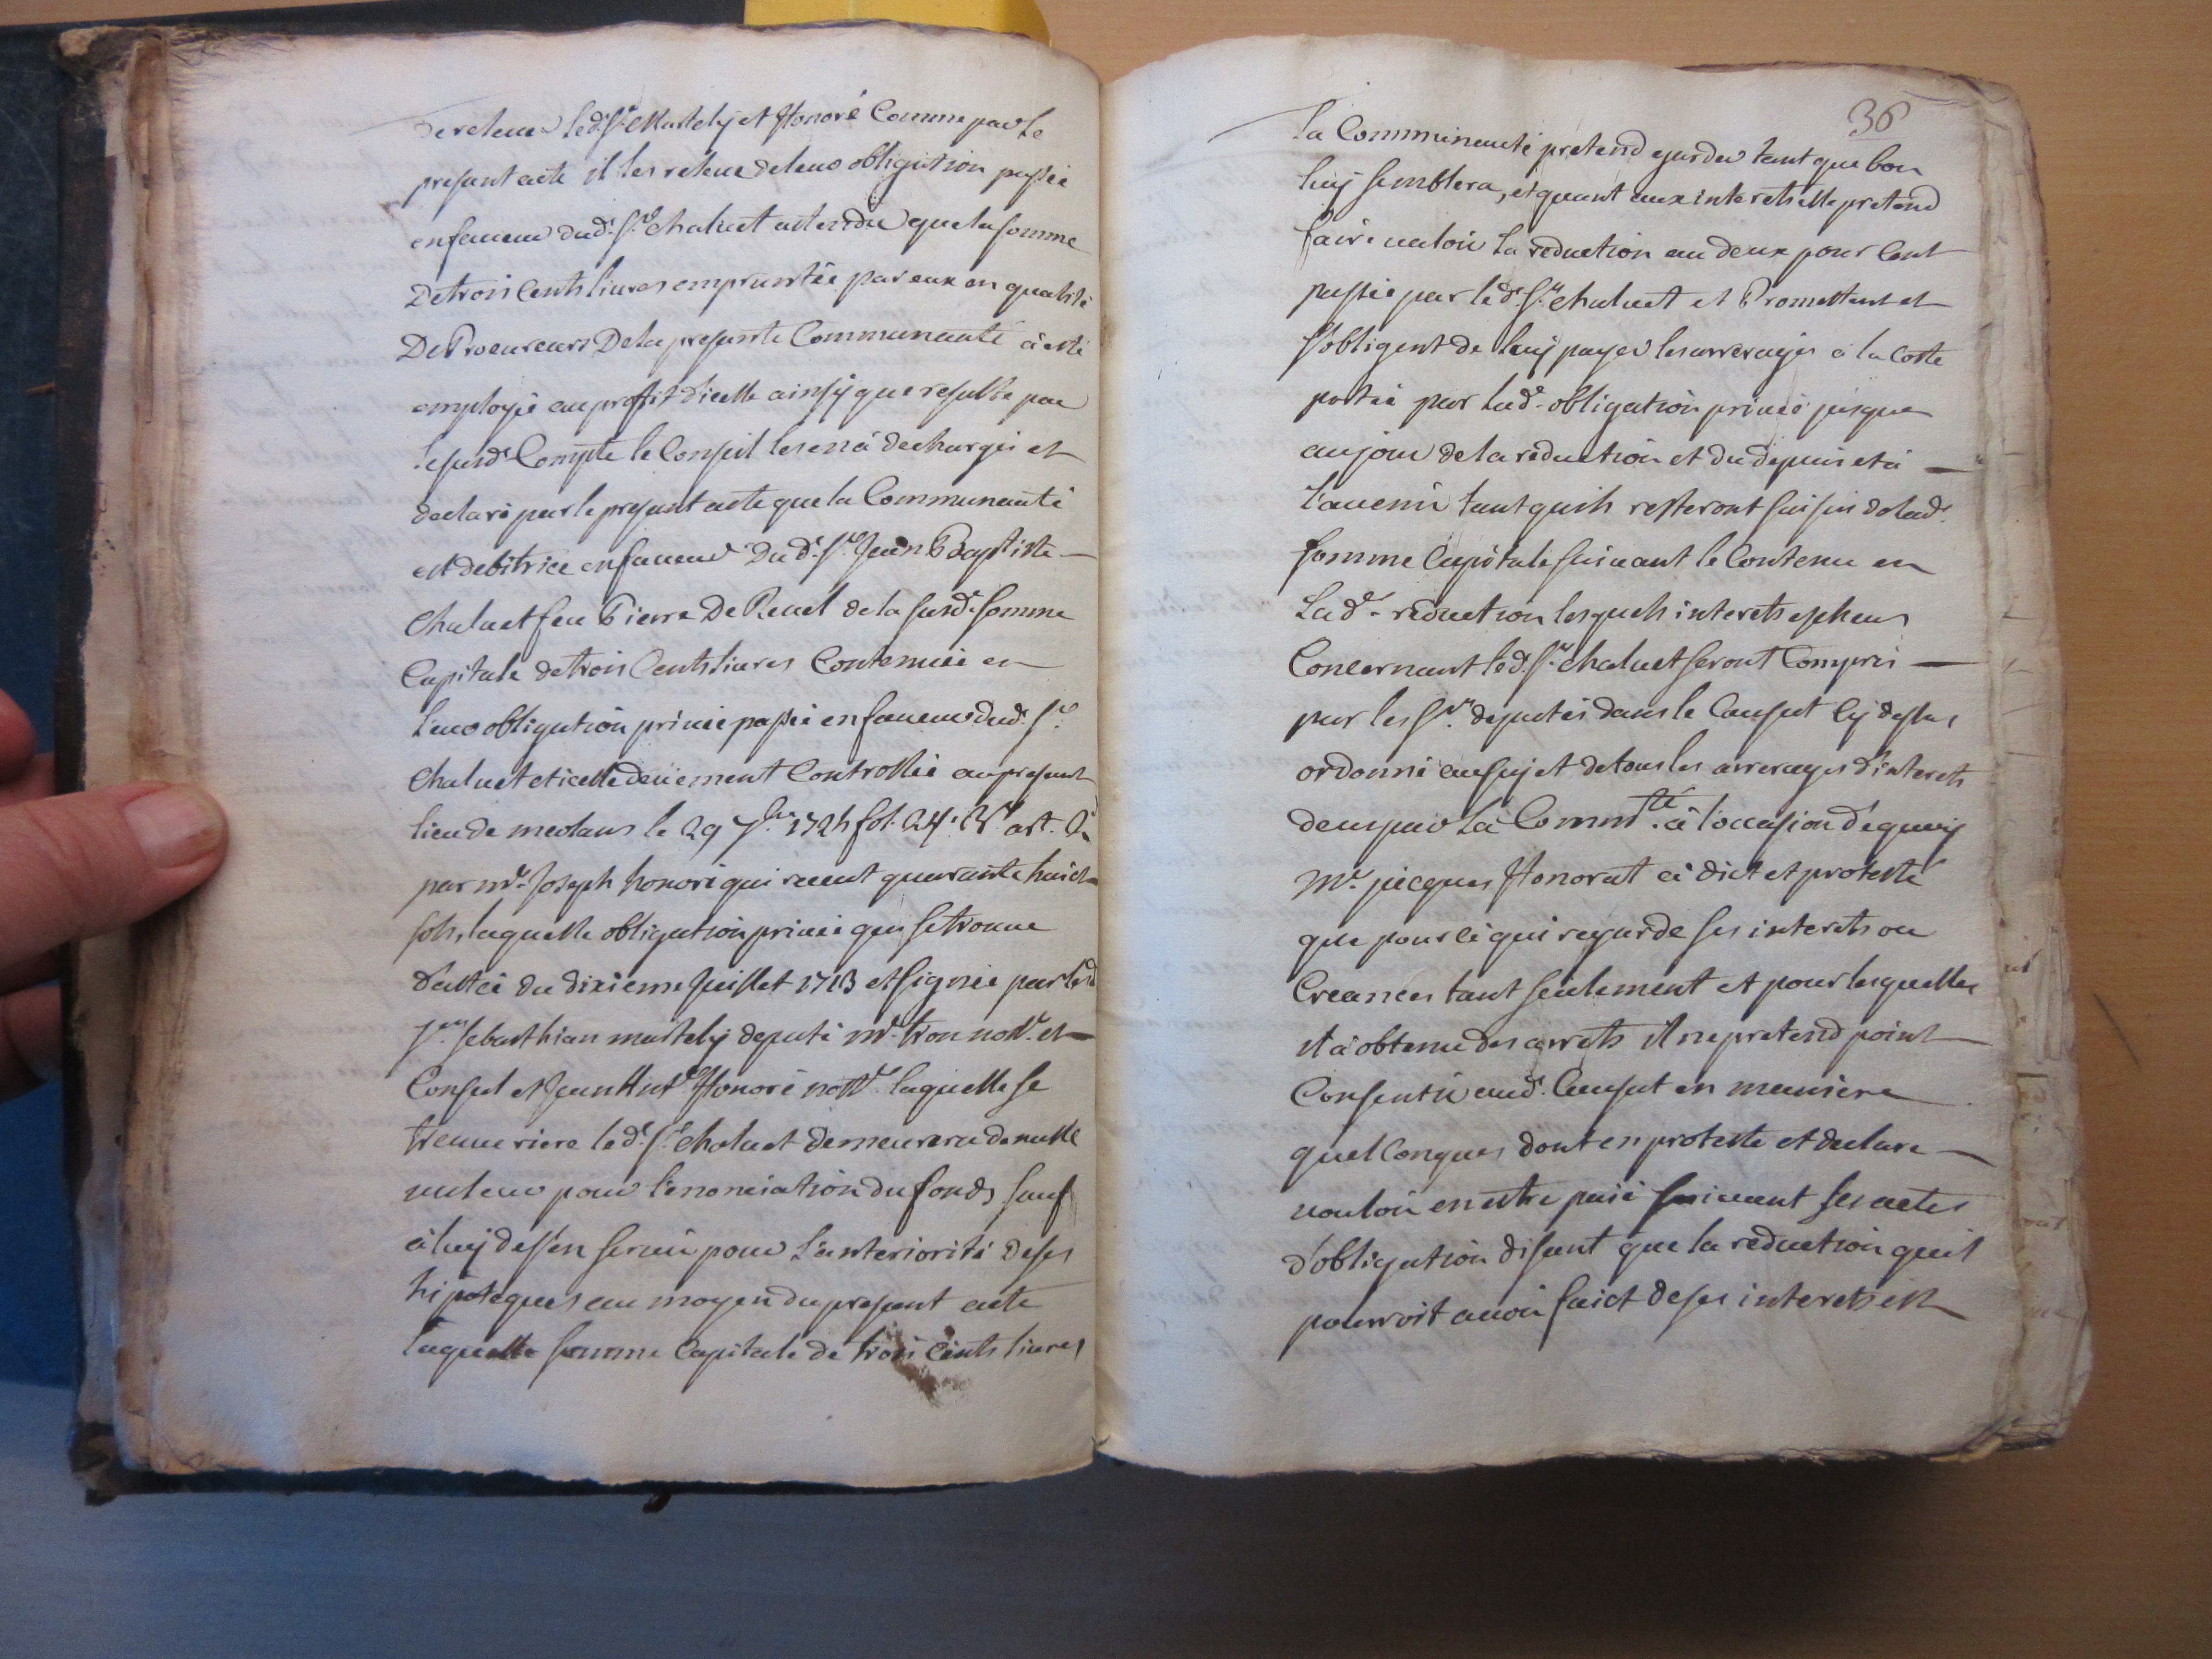 de relever led. Sr. Martely et Honoré Comme par le
presant acte il les releve de leur obligation passée
en faveur dud. Sr. Chaluet attendu que la somme
De trois Cents livres empruntée par eux en qualité
De Procureurs De la presante Communauté à esté
employée au proffit d'icelle ainsÿ que resulte par
le susd. Compte le Conseil les en à dechargés et
declaré par le presant acte que la Communauté
est debitrice en faveur Du d. Sr. Jean Baptiste
Chaluet feu Pierre De Revel de la susd. somme
Capitale de trois Cents livres Contenüe en
leur obligation privée passée en faveur dud. Sr.
Chaluet et icelle deüement Controllée au present
lieu de meolans le 29 7bre 1724 fol. 24. Vo. art. 2
par me. Joseph honoré qui receut quarante huict
sols, laquelle obligation privée qui se trouve
dattée du dixieme Juillet 1713 et signée par led
Srs. Sebasthian martely deputé me. tron nottre. et
Consul et Jean Antne. Honoré nottre. laquelle se
treuve riere led. Sr. Chaluet demeurera de nulle
valeur pour l'enonciation du fonds sauf
à luÿ de s'en servir pour L'anteriorité De ses
hipoteques au moyen du present acte
laquelle somme Capitale de trois Cents livres
36
la Communauté pretend garder tant que bon
luÿ semblera, et quant aux interets elle pretend
faire valoir la reduction au deux pour Cent
passée par led. Sr. Chaluet et Promettent et
s'obligent de luÿ payer les arrerages à la Cotte
portée par lad. obligation privée jusques
au jour de la reduction et du depuis et à
l'avenir tant quils resteront saisis de lad.
somme Capitale suivant le Contenu en
Lad. reduction lesquels interets escheus
Concernant led. Sr. Chaluet seront Compris
par les Srs. deputés dans le Causat Cÿ dessus
ordonné au sujet de tous les arrerages d'interets
deus par la Commté. à l'occasion dequoÿ
Me. jacques Honorat à dict et protesté
que pour ce qui regarde ses interets ou
Creances tant seulement et pour lesquelles
il à obtenu des arrets il ne pretend point
Consentir aud. Causat en maniere
quelConques dont en proteste et declare
vouloir en estre paié suivant ses actes
d'obligation disant que la reduction quil
pourroit avoir faict de ses interets est